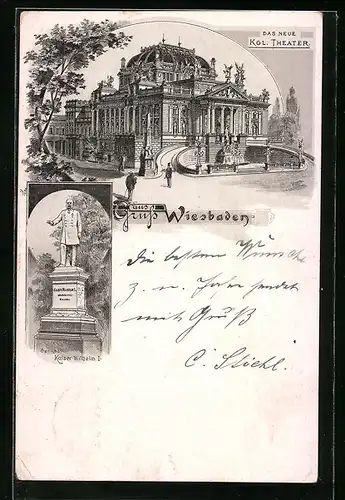 DAS NEUE
KGL. THEATER.
Gruß aus Wiesbaden
Die besten Wünsche
z. n. Jahre sendet
mit Gruß
C. Stichl.
KAISER WILHELM I.
Kaiser Wilhelm I.